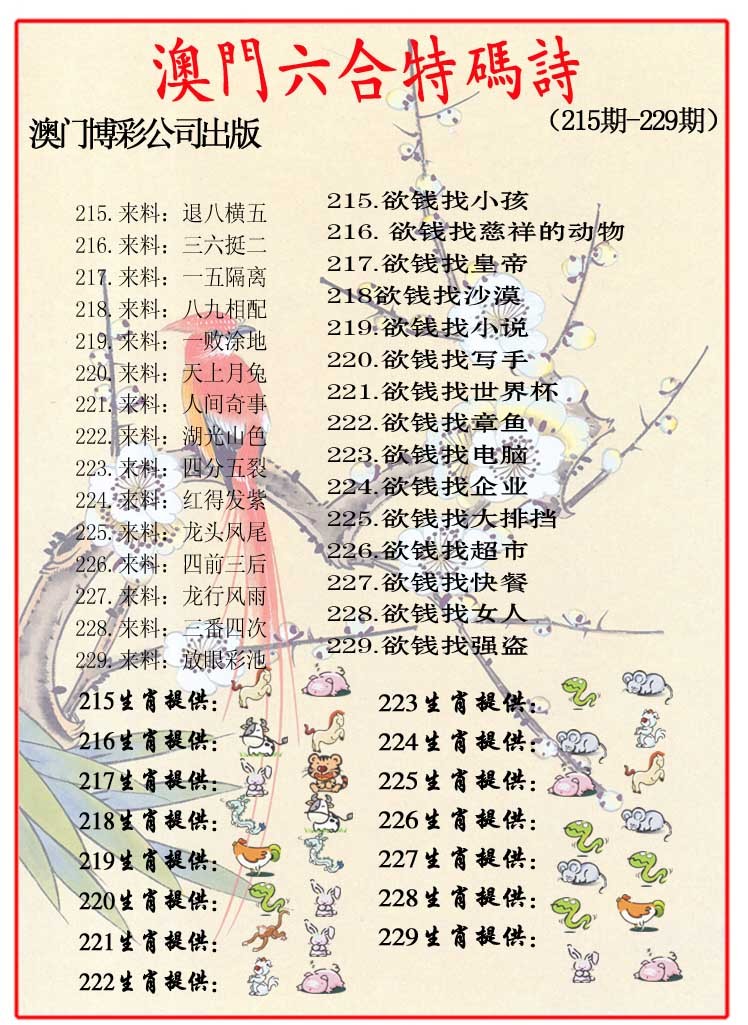 澳門六合特碼詩
澳门博彩公司出版
（215期-229期）
215.来料：退八横五
216.来料：三六挺二
217.来料：一五隔离
218.来料：八九相配
219.来料：一败涂地
220.来料：天上月兔
221.来料：人间奇事
222.来料：湖光山色
223.来料：四分五裂
224.来料：红得发紫
225.来料：龙头风尾
226.来料：四前三后
227.来料：龙行风雨
228.来料：三番四次
229.来料：放眼彩池
215.欲钱找小孩
216. 欲钱找慈祥的动物
217.欲钱找皇帝
218欲钱找沙漠
219.欲钱找小说
220.欲钱找写手
221.欲钱找世界杯
222.欲钱找章鱼
223.欲钱找电脑
224.欲钱找企业
225.欲钱找大排挡
226.欲钱找超市
227.欲钱找快餐
228.欲钱找女人
229.欲钱找强盗
215生肖提供：
216生肖提供：
217生肖提供：
218生肖提供：
219生肖提供：
220生肖提供：
221生肖提供：
222生肖提供：
223生肖提供：
224生肖提供：
225生肖提供：
226生肖提供：
227生肖提供：
228生肖提供：
229生肖提供：